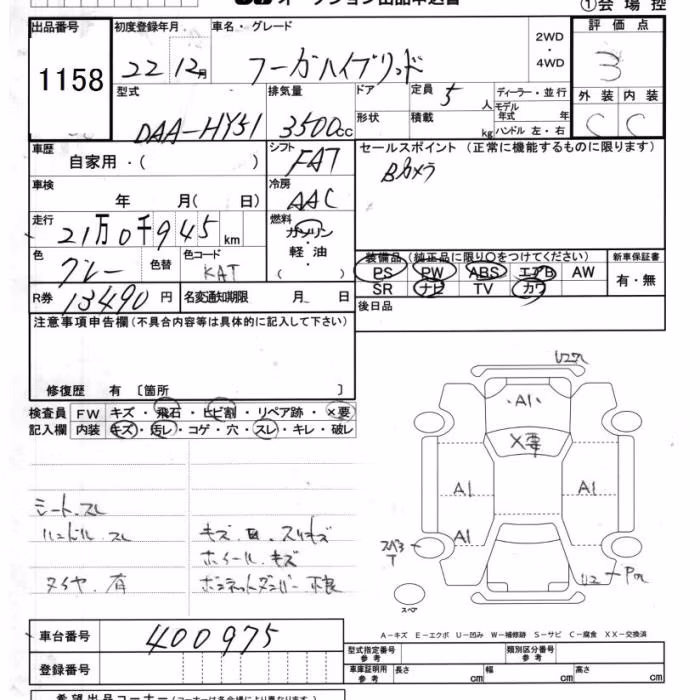 ①会場控
出品番号 初度登録年月 車名・グレード 2WD・4WD 評価点
1158 22 12月 フーガハイブリッド 3
型式 排気量 ドア 定員 5人 ディーラー・並行 外装 内装
DAA-HY51 3500cc 形状 積載 kg モデル年式 年 ハンドル 左・右 C C
車歴 自家用・( ) シフト FAT セールスポイント (正常に機能するものに限ります)
車検 年 月( 日) 冷房 AAC Bカメラ
走行 21万0千945km 燃料 ガソリン 軽・油 ( )
色 グレー 色替 色コード KAT
装備品(純正品に限り○をつけてください) 新車保証書
PS PW ABS エアB AW 有・無
SR ナビ TV カワ
R券 13490円 名変通知期限 月 日 後日品
注意事項申告欄(不具合内容等は具体的に記入して下さい)
修復歴 有 〔箇所 〕
検査員 FW キズ・飛石・ヒビ割・リペア跡・×要
記入欄 内装 キズ・汚レ・コゲ・穴・スレ・キレ・破レ
A1
X要
A1 A1
A1
スペア
シート.スレ
ハンドル スレ キズ.凹.スリキズ
ホイール.キズ
タイヤ.有 ボンネットダンパー 不良
A-キズ E-エクボ U-凹み W-補修跡 S-サビ C-腐食 XX-交換済
車台番号 400975
登録番号
型式指定番号 参考 類別区分番号 参考
車庫証明用 参考 長さ cm 幅 cm 高さ cm
希望出品コーナー